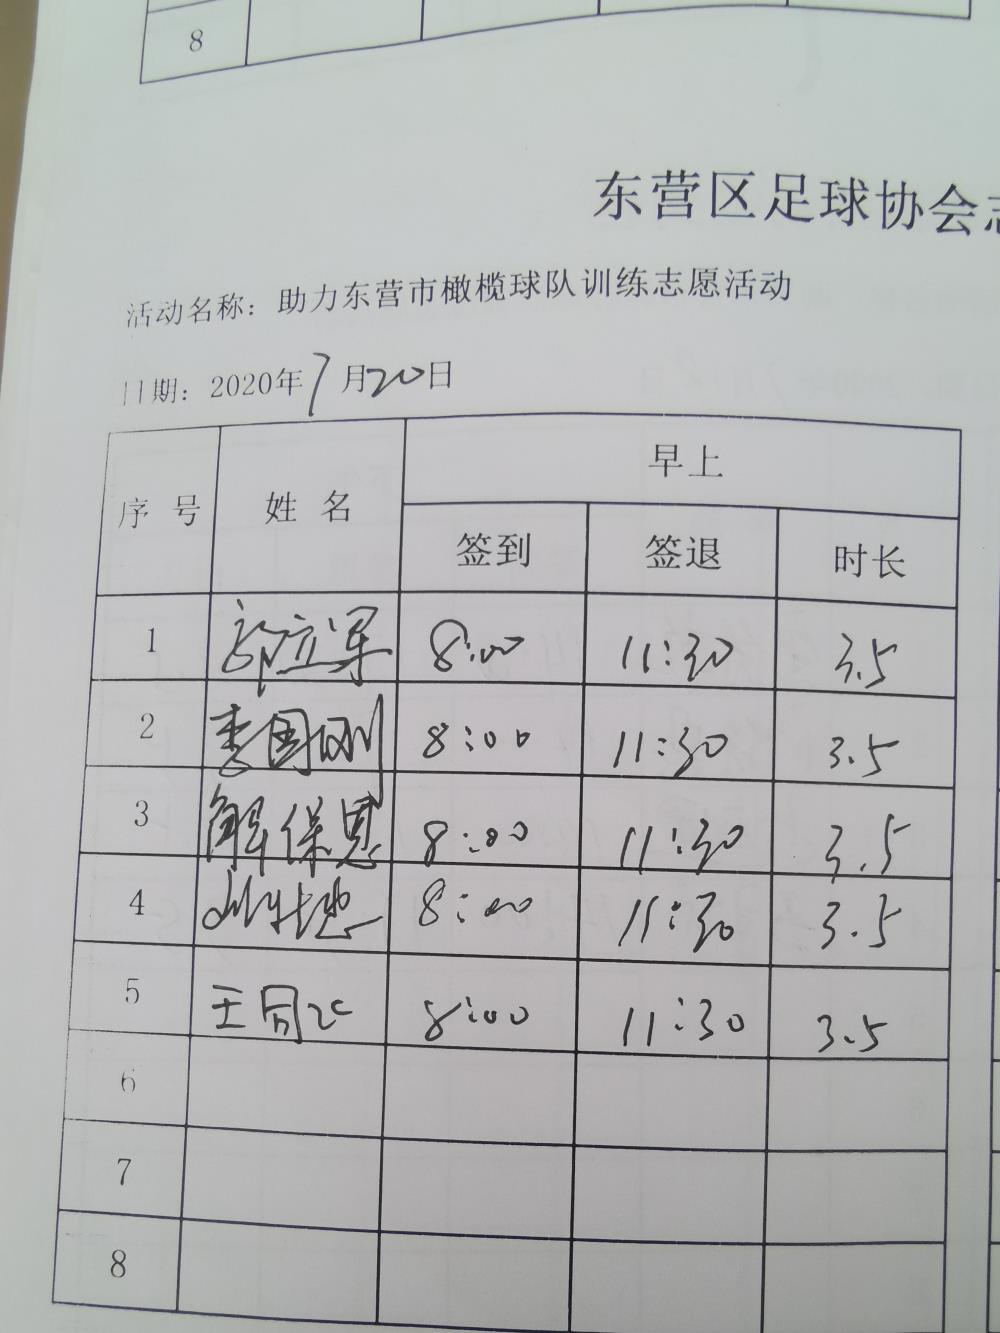 8
东营区足球协会志
活动名称：助力东营市橄榄球队训练志愿活动
日期：2020年7月20日
序号 姓名 早上
签到 签退 时长
1 郭立军 8:00 11:30 3.5
2 李国刚 8:00 11:30 3.5
3 解保恩 8:00 11:30 3.5
4 8:00 11:30 3.5
5 8:00 11:30 3.5
6
7
8